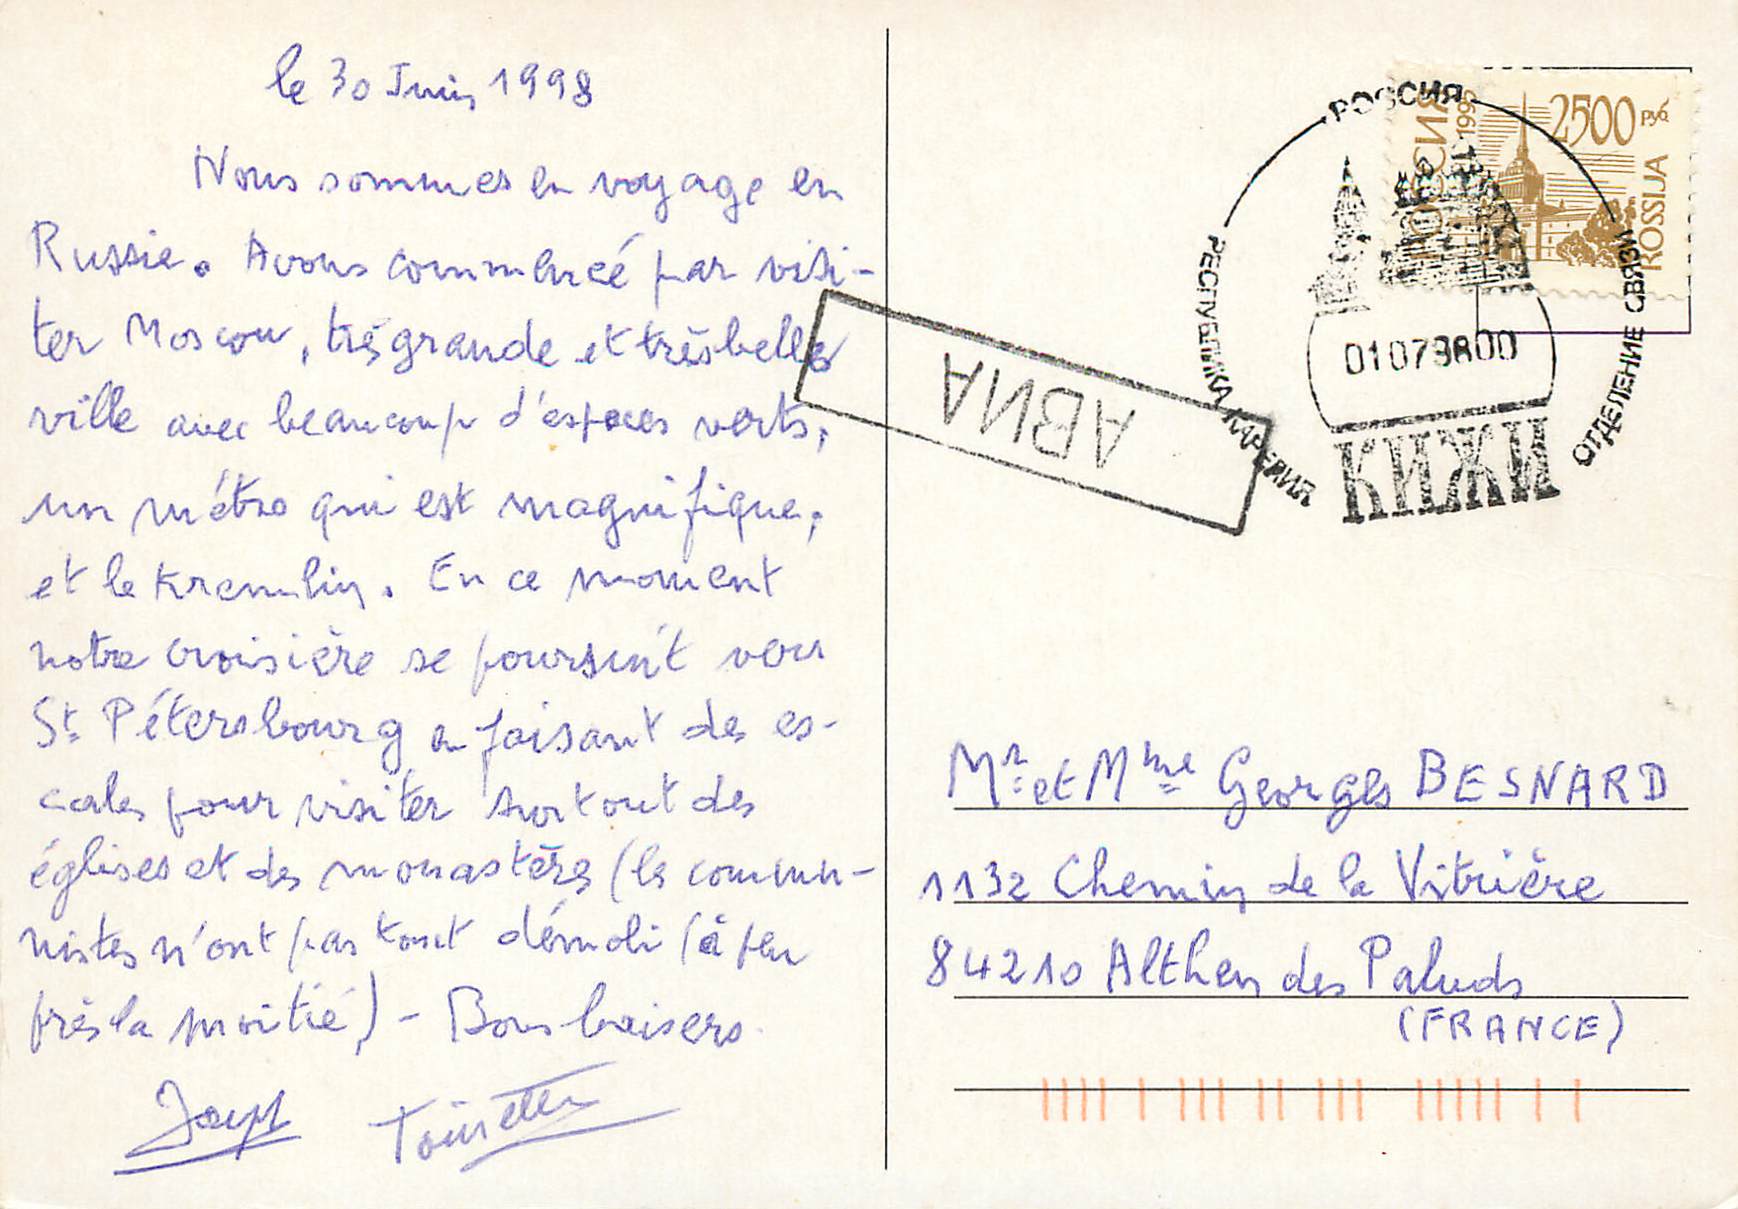 le 30 Juin 1998
Nous sommes en voyage en
Russie. Avons commencé par visi-
ter Moscou, très grande et très belle
ville avec beaucoup d'espaces verts,
un métro qui est magnifique,
et le Kremlin. En ce moment
notre croisière se poursuit vers
St Pétersbourg en faisant des es-
cales pour visiter surtout des
églises et des monastères (les commu-
nistes n'ont pas tout démoli (à peu
près la moitié) - Bons baisers.
РОССИЯ
РЕСПУБЛИКА КАРЕЛИЯ
ОТДЕЛЕНИЕ СВЯЗИ
КИЖИ
РОССИЯ 1995
2500 руб
ROSSIJA
АВИА
Mr et Mme Georges BESNARD
1132 Chemin de la Vitrière
84210 Althen des Paluds
(FRANCE)